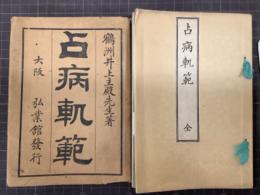 鶴洲井上主殿先生著
占病軌範
大阪 弘業館發行
占病軌範 全